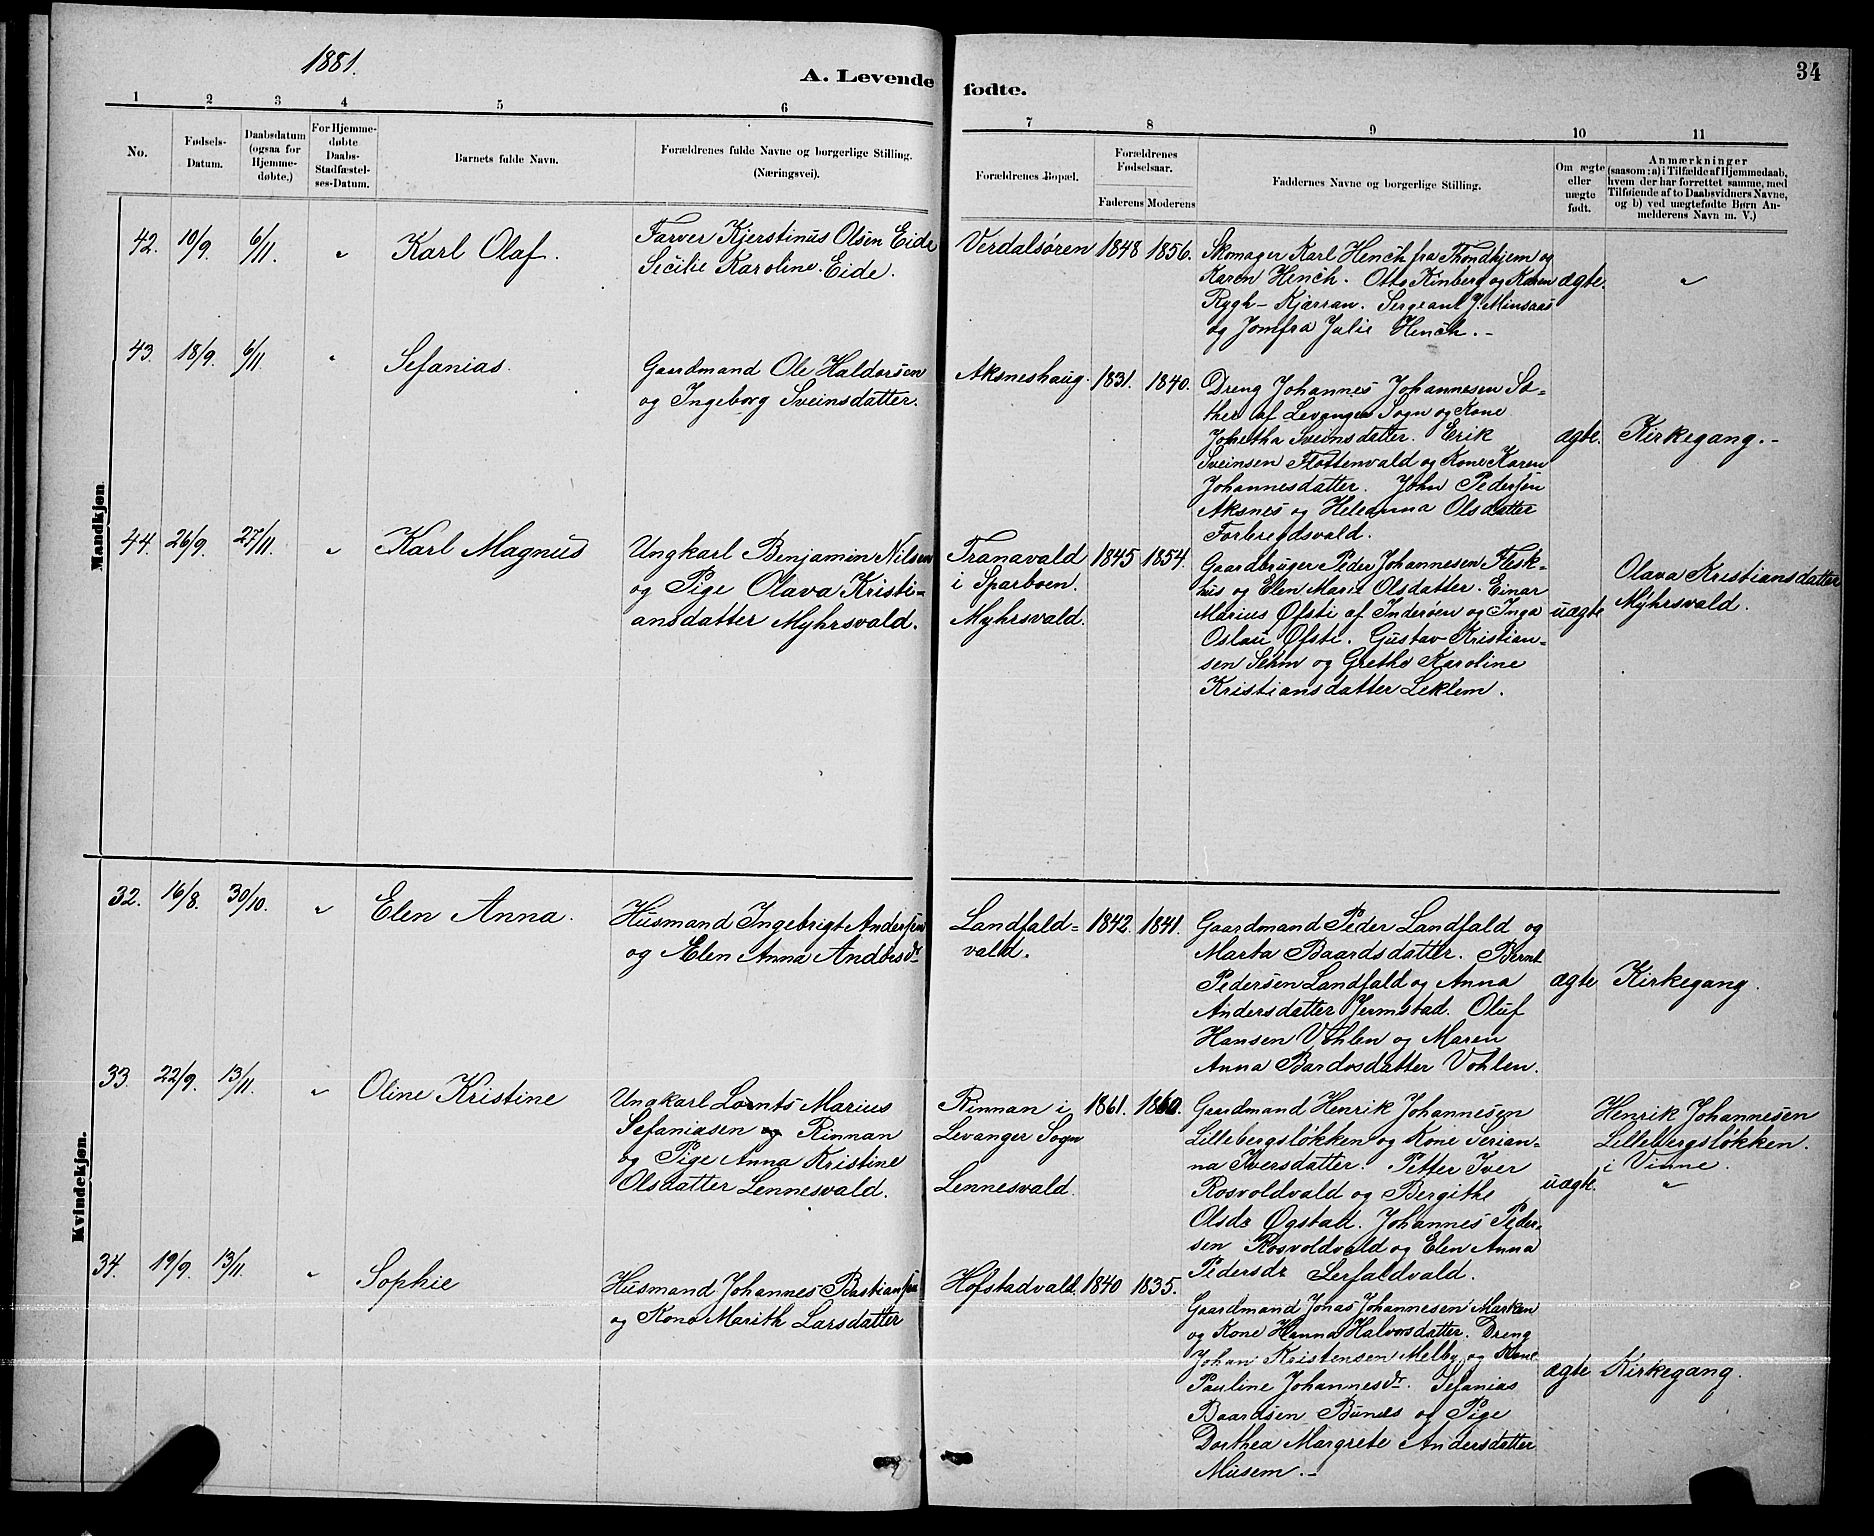 1881.
A. Levende
fødte.
34
1 2 3 4 5 6 7 8 9 10 11
No.
Fødsels-
Datum.
Daabsdatum
(ogsaa for
Hjemme-
døbte.)
For Hjemme-
døbte
Daabs-
Stadfæstel-
ses-Datum.
Barnets fulde Navn.
Forældrenes fulde Navne og borgerlige Stilling.
(Næringsvei).
Forældrenes Bopæl.
Forældrenes
Fødselsaar.
Faderens
Moderens
Faddernes Navne og borgerlige Stilling.
Om ægte
eller
uægte
født.
Anmærkninger
(saasom: a) i Tilfælde af Hjemmedaab,
hvem der har forrettet samme, med
Tilføiende af to Daabsvidners Navne,
og b) ved uægtefødte Børn An-
melderens Navn m. V.)
Mandkjøn.
42. 10/9. 6/11. " Karl Olaf.
Farver Kjerstinus Olsen Eide
Secilie Karoline Eide.
Verdalsøren 1848 1856.
Skomager Karl Hench fra Thondhjem og
Karen Hench. Otto Kinberg og Karen
Rygh - Kjærran. Sergeant J. Minsaas
og Jomfru Julie Hench. -
ægte.
"
43. 18/9. 6/11. " Sefanias.
Gaardmand Ole Haldorsen
og Ingeborg Sveinsdatter.
Aksneshaug. 1831. 1840.
Dreng Johannes Johannesen So-
ther af Levanger Sogn og Kone
Joretha Sveinsdatter. Erik
Sveinsen Flottenvald og Kone Karen
Johannesdatter. John Pedersen
Aksnes og Heleanna Olsdatter
Forbregdsvald.
ægte. Kirkegang. -
44. 26/9. 27/11. " Karl Magnus
Ungkarl Benjamin Nilsen
og Pige Olava Kristi-
ansdatter Myhrsvald.
Tranavald
i Sparboen.
Myhrsvald.
1845 1854.
Gaardbruger Peder Johannesen Flesk-
hus og Elen Marie Olsdatter. Einar
Marius Øfsti af Inderøen og Inga
Oslau Øfsti. Gustav Kristian-
sen Sehm og Grethe Karoline
Kristiansdatter Leklem.
uægte
Olava Kristiansdatter
Myhrsvald.
Kvindekjøn.
32. 16/8. 30/10. " Elen Anna.
Husmand Ingebrigt Andersen
og Elen Anna Andersdr
Landfald-
vald.
1842. 1841.
Gaardmand Peder Landfald og
Marta Baardsdatter. Bernt
Pedersen Landfald og Anna
Andersdatter Jermstad. Oluf
Hansen Vohlen og Maren
Anna Bardosdatter Vohlen.
ægte Kirkegang.
33. 22/9. 13/11. " Oline Kristine
Ungkarl Lornts Marius
Sefaniasen og Rinnan
og Pige Anna Kristine
Olsdatter Lennesvald.
Rinnan i
Levanger Sogn
Lennesvald.
1861. 1860.
Gaardmand Henrik Johannesen
Lillebergsløkken og Kone Serian-
na Iversdatter. Petter Iver
Rosvoldvald og Bergithe
Olsdr Øgstad. Johannes Peder-
sen Rosvoldvald og Elen Anna
Pedersdr Lerfaldvald.
uægte.
Henrik Johannesen
Lillebergsløkken.
i Vinne.
"
34. 19/9. 13/11. " Sophie
Husmand Johannes Bastiansen
og Kone Marith Larsdatter
Hofstadvald. 1840 1835.
Gaardmand Jonas Johannesen Marken
og Kone Hanna Halvorsdatter. Dreng
Johan Kristensen Melby og Kone
Pauline Johannesdr. Sefanias
Baardsen Bunes og Pige
Dorthea Margrete Andersdatter
Musem. -
ægte Kirkegang.